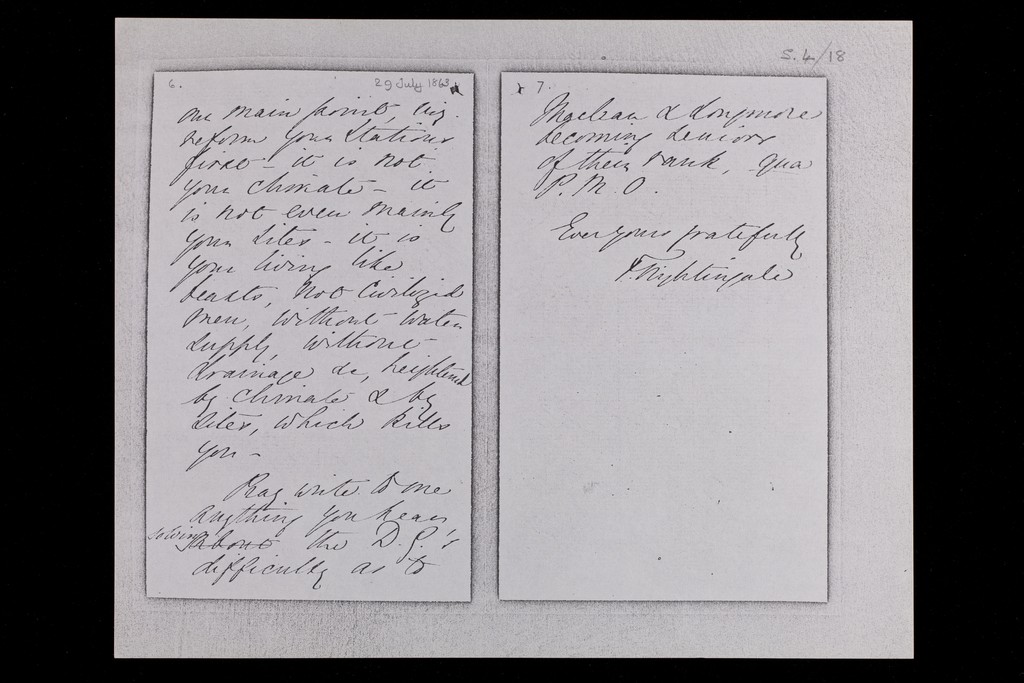 S.4/18
6.
29 July 1863
our main point, viz.
reform your Stations
first - it is not
your climate - it
is not even mainly
your Sites - it is
your living like
beasts, not civilized
men, without water
supply, without
drainage &c, heightened
by climate & by
Sites, which kills
you -
Pray write to me
anything you hear
solving about the D.G.'s
difficulty as to
7.
Maclean & Longmore
becoming Seniors
of their rank, qua
P.M.O.
Ever yours gratefully
F. Nightingale